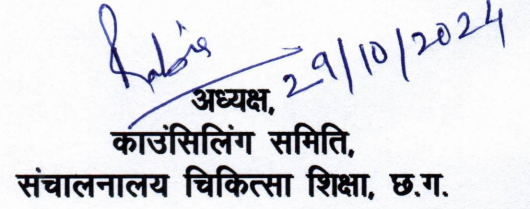 29/10/2024
अध्यक्ष,
काउंसिलिंग समिति,
संचालनालय चिकित्सा शिक्षा, छ.ग.